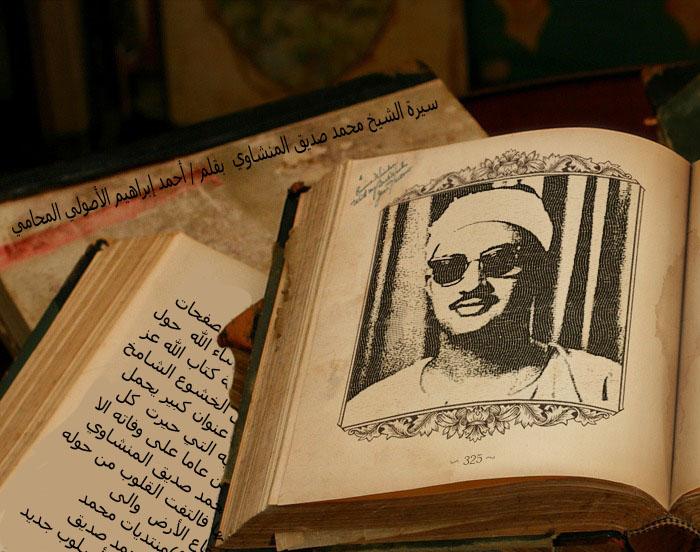 سيرة الشيخ محمد صديق المنشاوي بقلم / أحمد إبراهيم الأصولى المحامي
صفحات
الله حول
كتاب الله عز
الخشوع الشامخ
عنوان كبير يحمل
التى حيرت كل
عاما على وفاته الا
صديق المنشاوي
فالتفت القلوب من حوله
الأرض والى
منتديات محمد
صديق
جديد
325